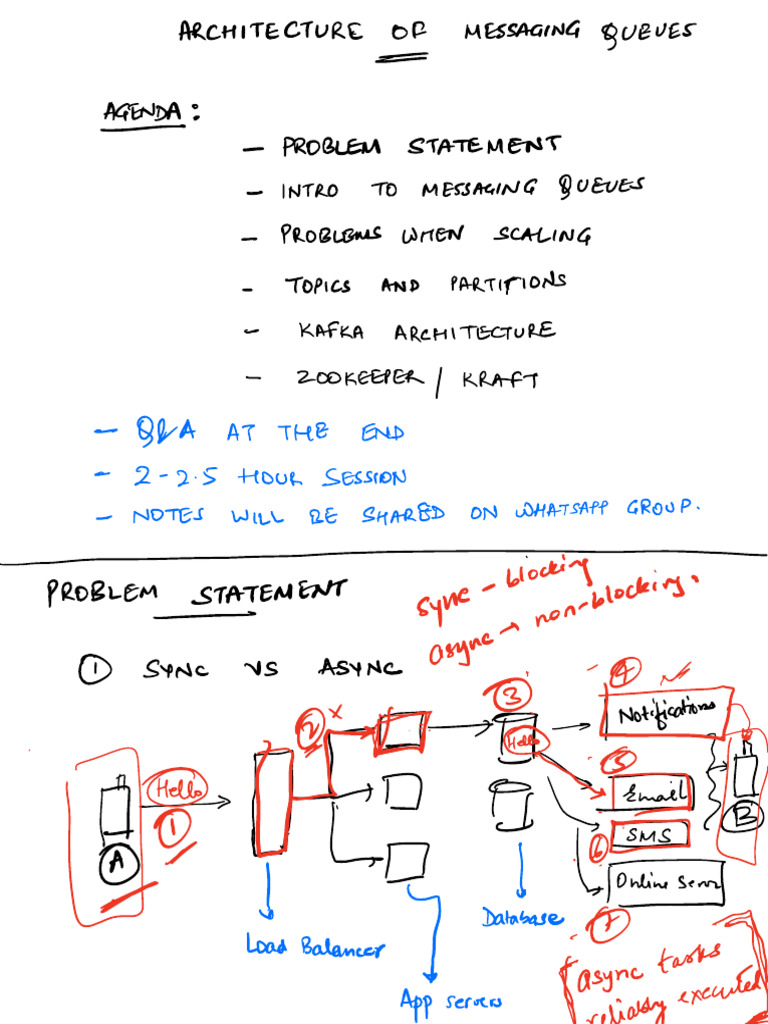 ARCHITECTURE OF MESSAGING QUEUES
AGENDA:
- PROBLEM STATEMENT
- INTRO TO MESSAGING QUEUES
- PROBLEMS WHEN SCALING
- TOPICS AND PARTITIONS
- KAFKA ARCHITECTURE
- ZOOKEEPER / KRAFT
- Q&A AT THE END
- 2-2.5 HOUR SESSION
- NOTES WILL BE SHARED ON WHATSAPP GROUP.
PROBLEM STATEMENT
sync - blocking
async → non-blocking.
① SYNC VS ASYNC
Hello
①
A
② x
③
Hello
④
Notifications
⑤
Email
⑥
SMS
Online Server
B
Load Balancer
App servers
Database
⑦
async tasks
reliably executed